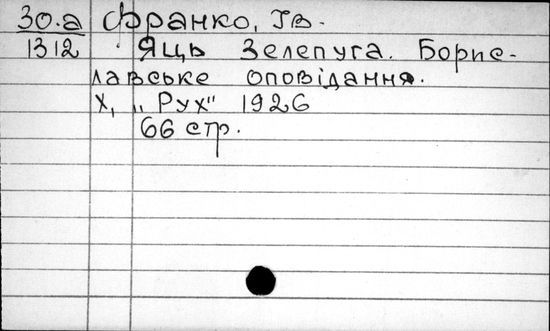 30.а Франко, Ів.
1312 Яць Зелепуга. Борис-
лавське оповідання.
Х, „Рух" 1926
66 стр.